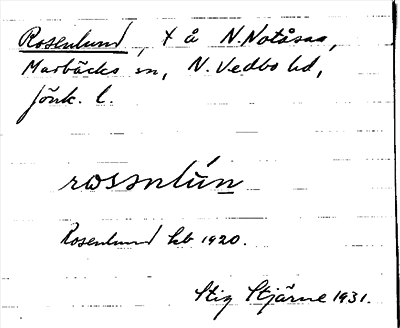 Rosenlund, t å N. Notåsaa,
Marbäcks sn, N. Vedbo hd,
Jönk. l.
rosənlún
Rosenlund kb 1920.
Stig Stjärne 1931.